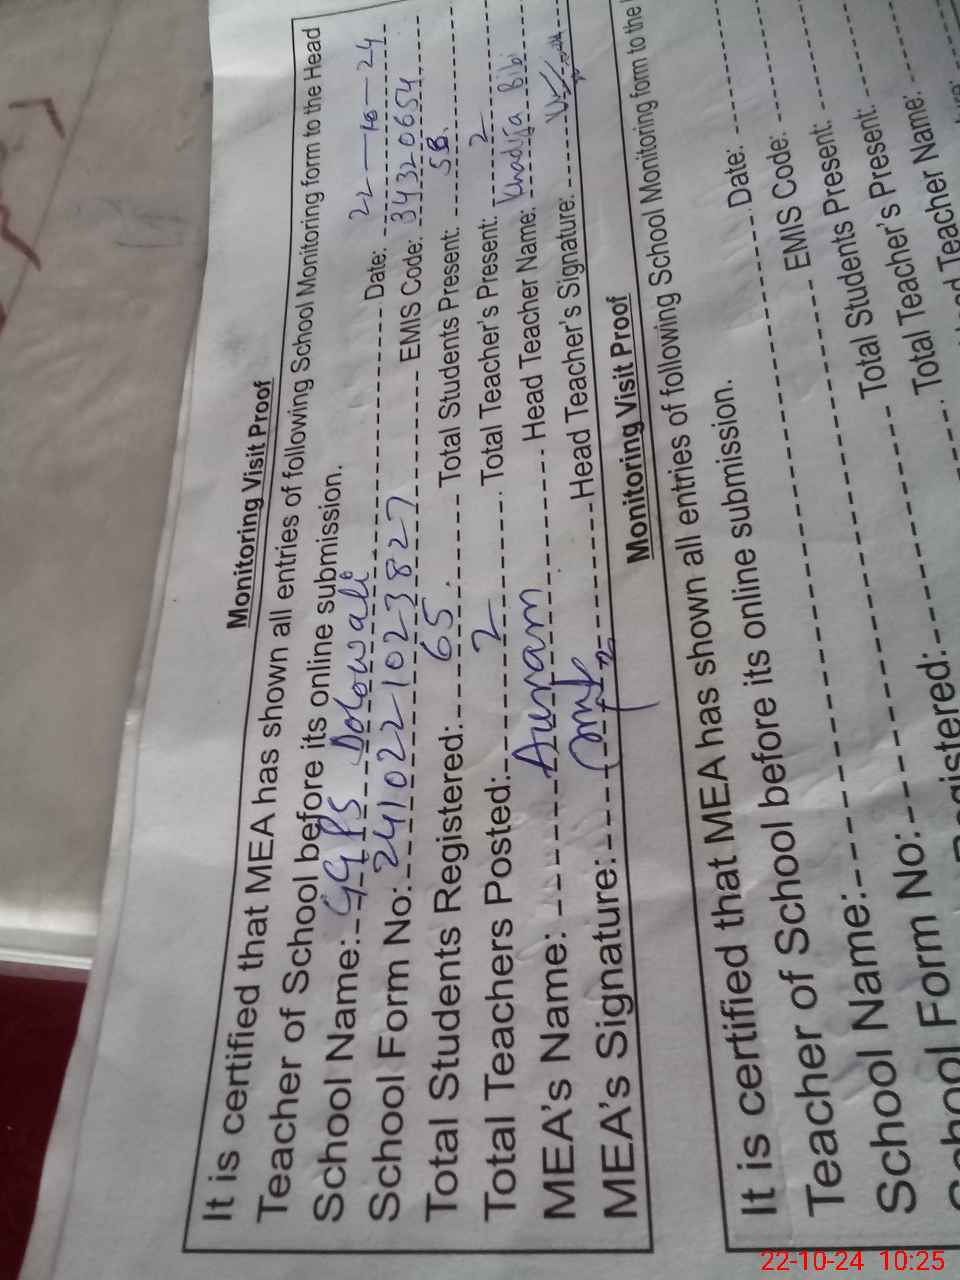 Monitoring Visit Proof
It is certified that MEA has shown all entries of following School Monitoring form to the Head
Teacher of School before its online submission.
School Name: GGPS Dolowali Date: 22-10-24
School Form No: 2410221023827 EMIS Code: 34320654
Total Students Registered: 65 Total Students Present: 58
Total Teachers Posted: 2 Total Teacher's Present: 2
MEA's Name: Aunam Head Teacher Name: Khadija Bibi
MEA's Signature: Head Teacher's Signature:
Monitoring Visit Proof
It is certified that MEA has shown all entries of following School Monitoring form to the
Teacher of School before its online submission.
School Name: Date:
School Form No: EMIS Code:
Registered: Total Students Present:
Total Teacher's Present:
Teacher Name:
22-10-24 10:25